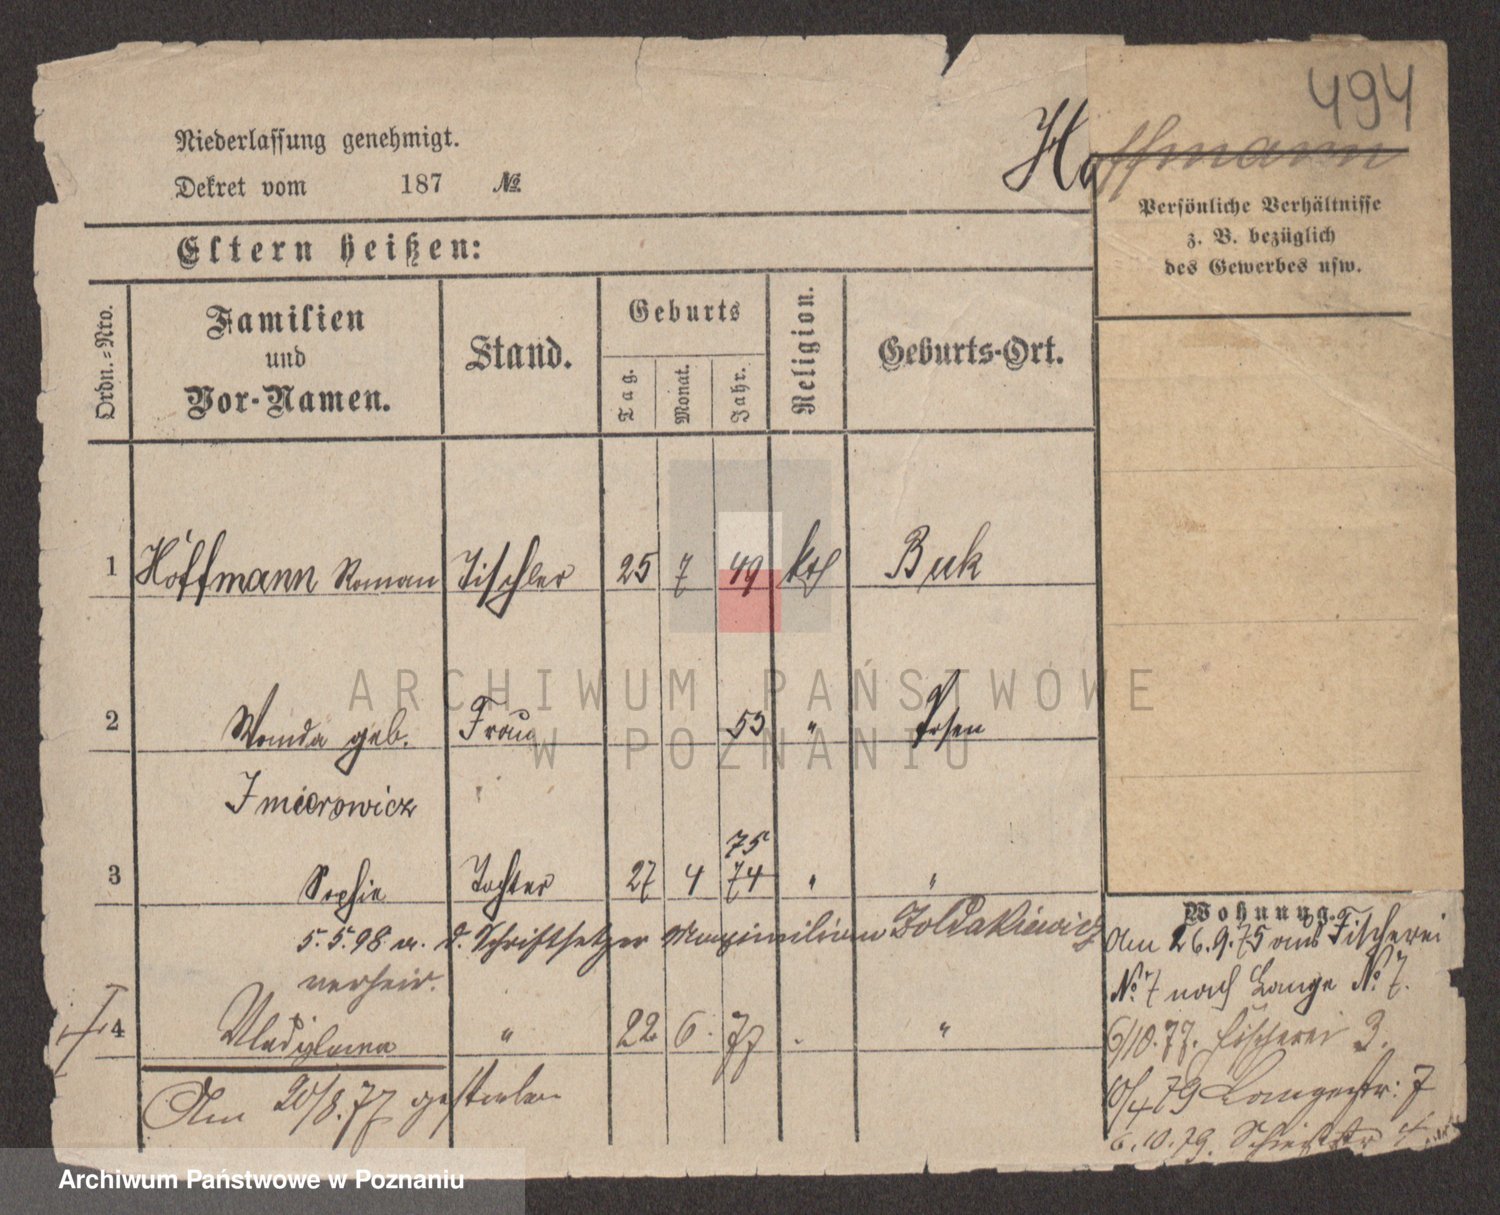 494
Niederlassung genehmigt.
Dekret vom 187 №
Hoffmann
Persönliche Verhältnisse
z. B. bezüglich
des Gewerbes usw.
Eltern heißen:
Ordn.=Nro.
Familien
und
Vor-Namen.
Stand.
Geburts
Tag.
Monat.
Jahr.
Religion.
Geburts-Ort.
1 Hoffmann Roman Tischler 25 7 49 kth Buk
2 Wanda geb. Frau 53 " Posen
Imierowicz
75
3 Sophie Tochter 27 4 74 " "
5.5.98 a. d. Schriftsetzer Maximilian Zoldakiewicz
verheir.
4 Vladislawa " 22 6. 77 . "
Am 20/8.77 gestorben
Wohnung.
Am 26.9.75 aus Fischerei
No 7 nach Lange No 7.
6/10.77. Fischerei 3.
10/4 79 Langestr: 7
6.10.79.
ARCHIWUM PAŃSTWOWE
W POZNANIU
Archiwum Państwowe w Poznaniu